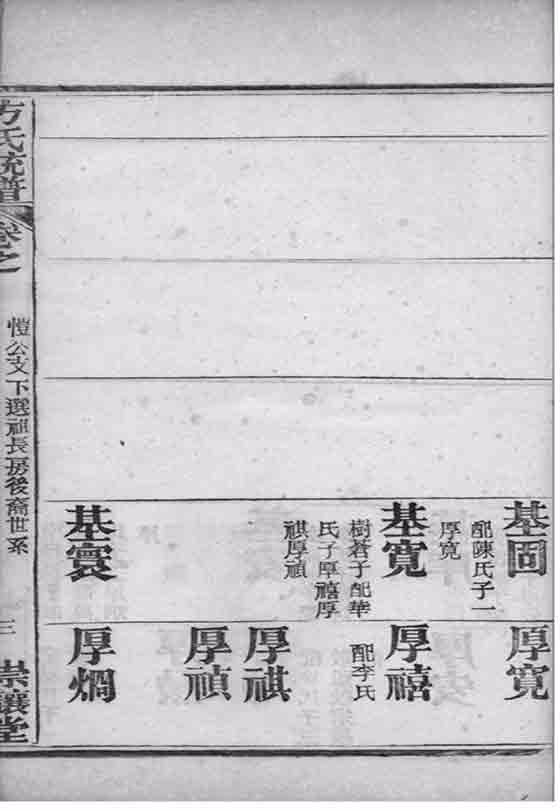 基固
配陳氏子一
厚寛
基寛
樹蒼子配華
氏子厚禧厚
祺厚禎
基寰
厚寛
厚禧
配李氏
厚祺
厚禎
厚燗
方氏統譜
卷之
愷公支下選祖長房後裔世系
三
崇讓堂